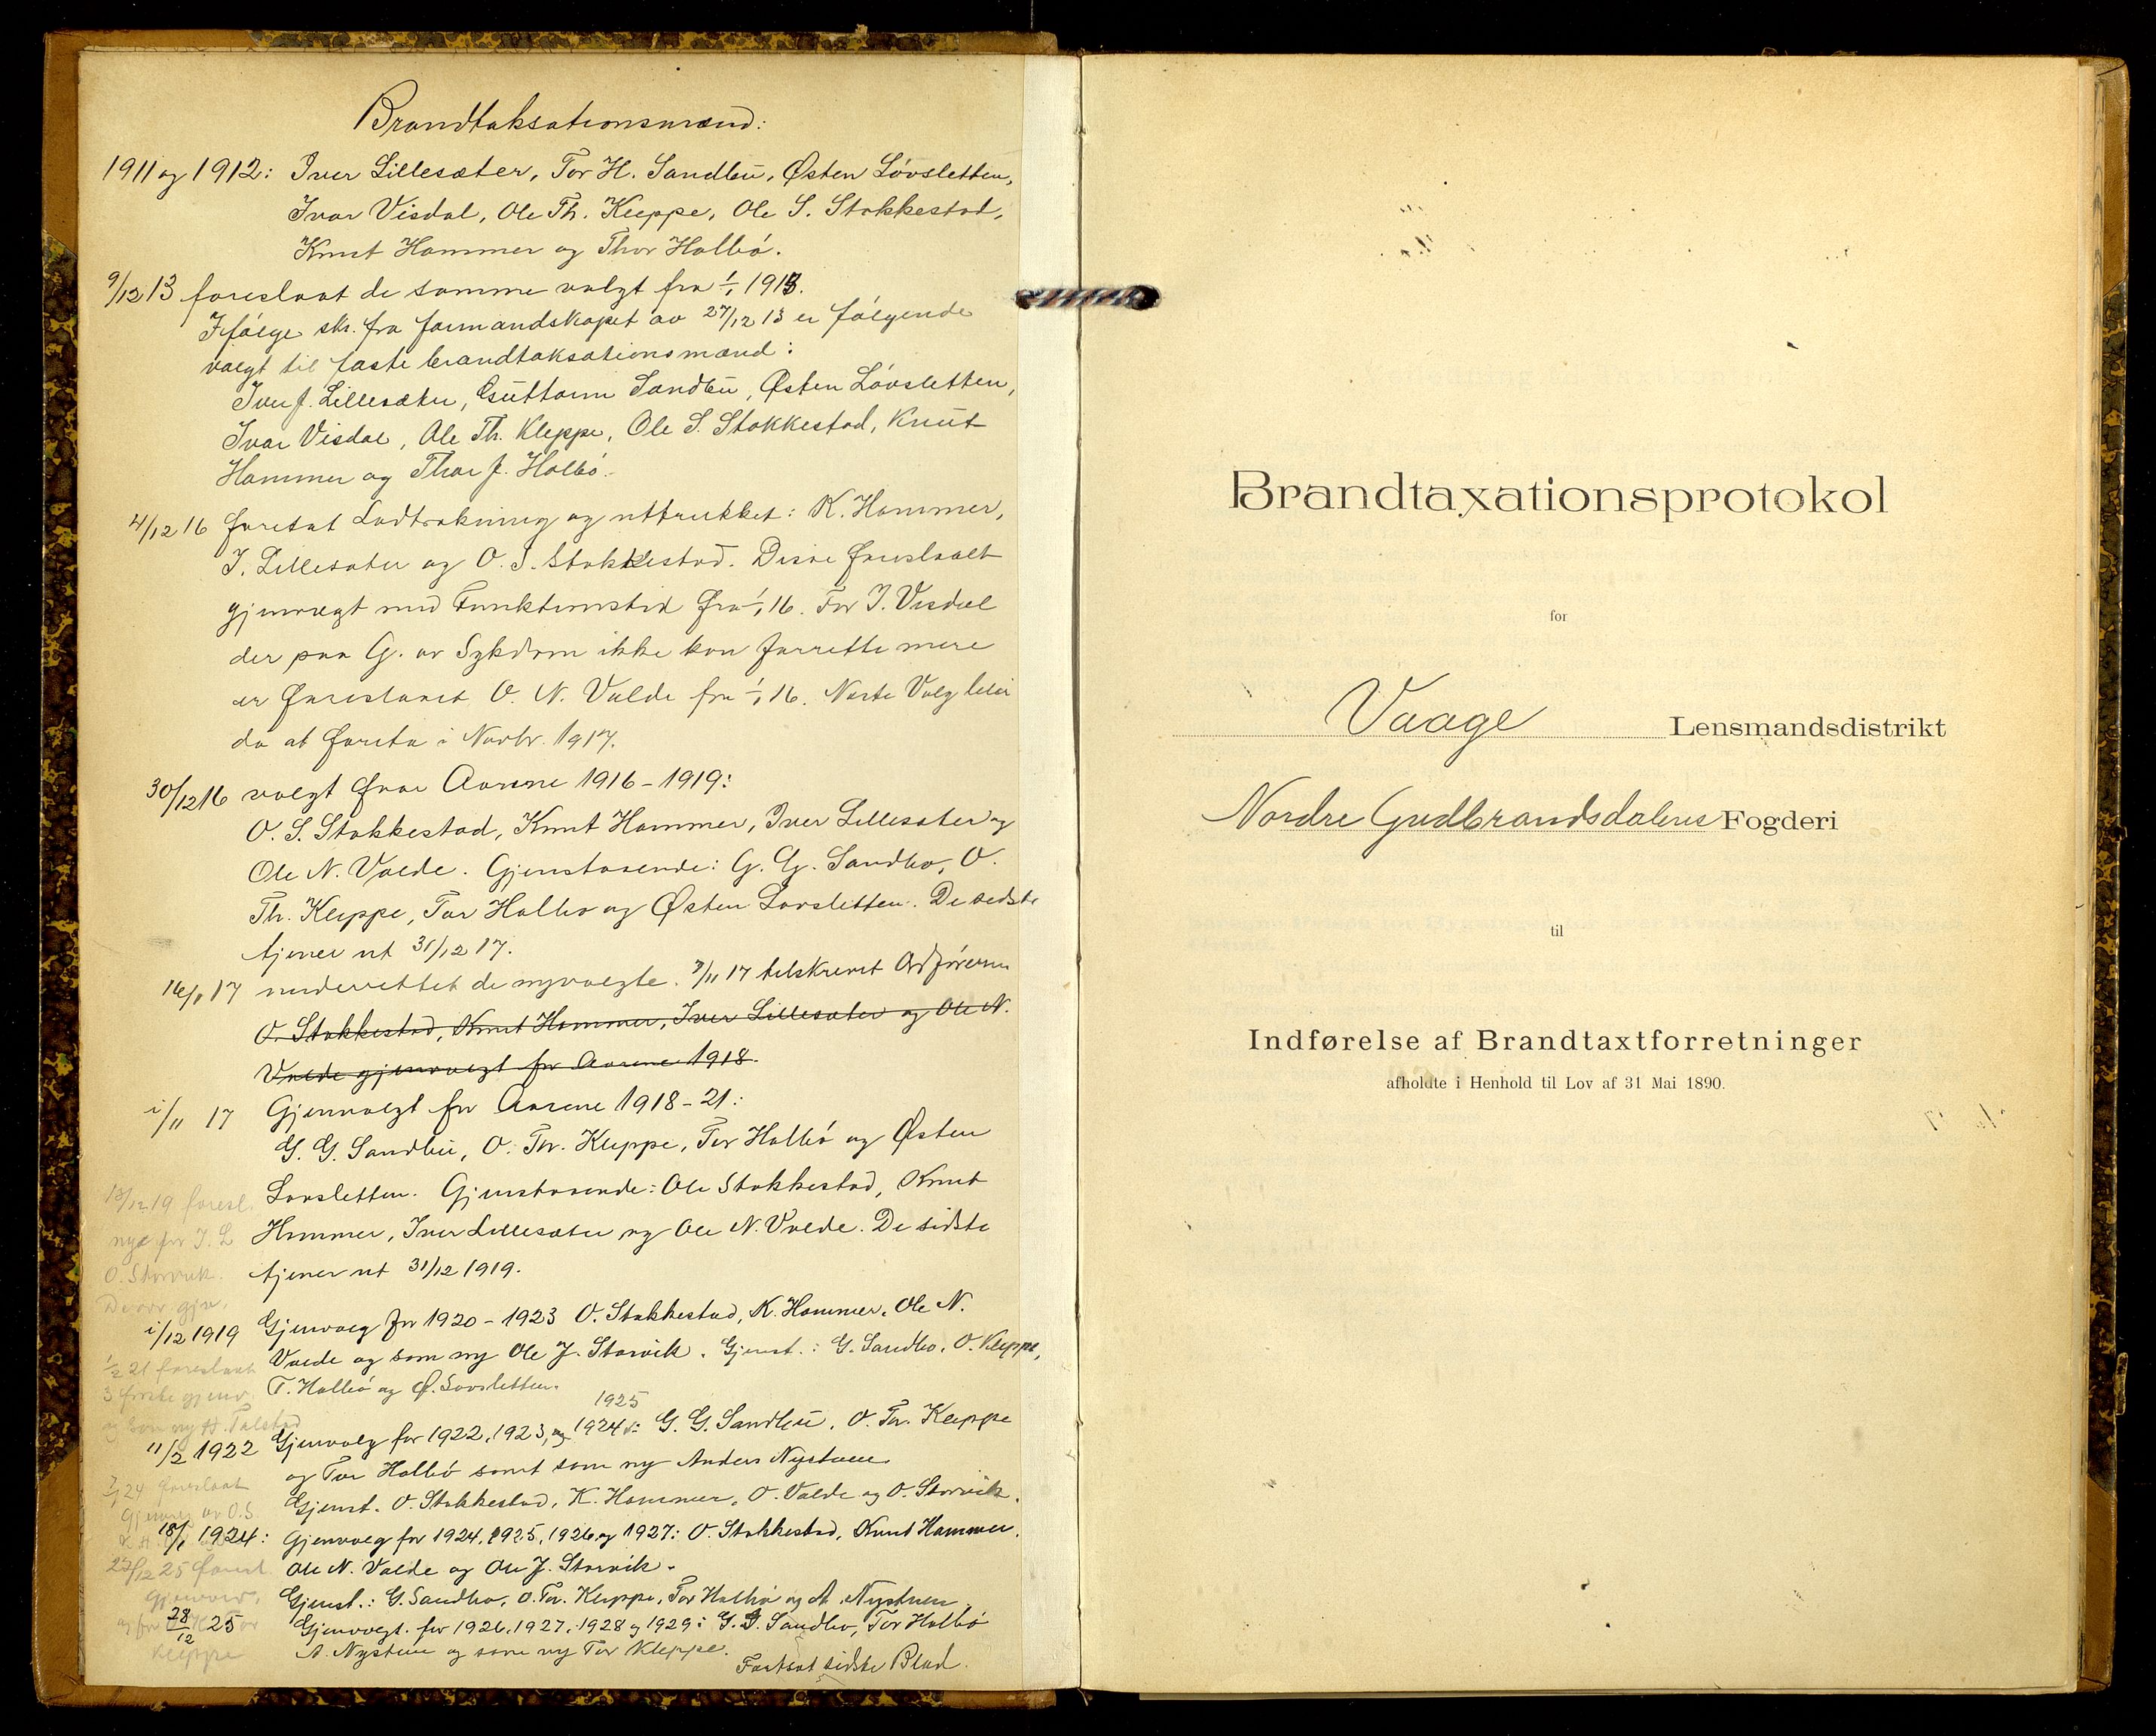 Brandtaksationsmænd:
1911 og 1912: Iver Lillesæter, Tor H. Sandbu, Østen Løvsletten,
Ivar Visdal, Ole Th. Kleppe, Ole S. Stokkestad,
Knut Hammer og Thor Holbø.
9/12 13 foreslaat de samme valgt fra 1/1 1913.
Ifølge skr. fra formandskapet av 27/12 13 er følgende
valgt til faste brandtaksationsmænd:
Iver J. Lillesæter, Guttorm Sandbu, Østen Løvsletten,
Ivar Visdal, Ole Th. Kleppe, Ole S. Stokkestad, Knut
Hammer og Thor J. Holbø.
4/12 16 foretat Lodtrækning og uttrukket: K. Hammer,
I. Lillesæter og O. S. Stokkestad. Disse foreslaaet
gjenvalgt med Funktionstid fra 1/1 16. For I. Visdal
der paa G. av Sykdom ikke kan forrette mere
er foreslaaet O. N. Valde fra 1/1 16. Næste Valg blir
da at foreta i Novbr. 1917.
30/12 16 valgt for Aarene 1916-1919:
O. S. Stokkestad, Knut Hammer, Iver Lillesæter og
Ole N. Valde. Gjenstaaende: G. G. Sandbo, O.
Th. Kleppe, Tor Holbo og Østen Løvsletten. De sidste
tjener ut 31/12 17.
16/1 17 underrettet de nyvalgte. 7/11 17 tilskrevet Ordføreren
O. Stokkestad, Knut Hammer, Iver Lillesæter og Ole N.
Valde gjenvalgt for Aarene 1918.
i/11 17 Gjenvalgt for Aarene 1918-21:
G. G. Sandbu, O. Th. Kleppe, Tor Holbø og Østen
13/12 19 foresl. Løvsletten. Gjenstaaende: Ole Stokkestad, Knut
nye for I. L Hammer, Iver Lillesæter og Ole N. Valde. De sidste
O. Storvik. tjener ut 31/12 1919.
i/12 1919 Gjenvalg for 1920-1923 O. Stokkestad, K. Hammer, Ole N.
Valde og som ny Ole J. Storvik. Gjenst.: G. Sandbo, O. Kleppe,
21 foreslaat
3 første gjenv. T. Holbø og Ø. Løvsletten.
og som ny A. 1925
11/2 1922 Gjenvalg for 1922, 1923, og 1924: G. G. Sandbu, O. Th. Kleppe
og Tor Holbø samt som ny Anders Nystuen
24 foreslaat Gjenst. O. Stokkestad, K. Hammer, O. Valde og O. Storvik.
gjenvalg av O.S.
18/1 1924: Gjenvalg for 1924, 1925, 1926 og 1927: O. Stokkestad, Knut Hammer,
25 forest. Ole N. Valde og Ole J. Storvik.
Gjenst.: G. Sandbo, O. Th. Kleppe, Tor Holbø og A. Nystuen
28/12 25 Gjenvalgt for 1926, 1927, 1928 og 1929: G. G. Sandbo, Tor Holbø
Kleppe A. Nystuen og som ny Tor Kleppe.
Fortsat sidste Blad.
Brandtaxationsprotokol
for
Vaage Lensmandsdistrikt
Nordre Gudbrandsdalens Fogderi
til
Indførelse af Brandtaxtforretninger
afholdte i Henhold til Lov af 31 Mai 1890.